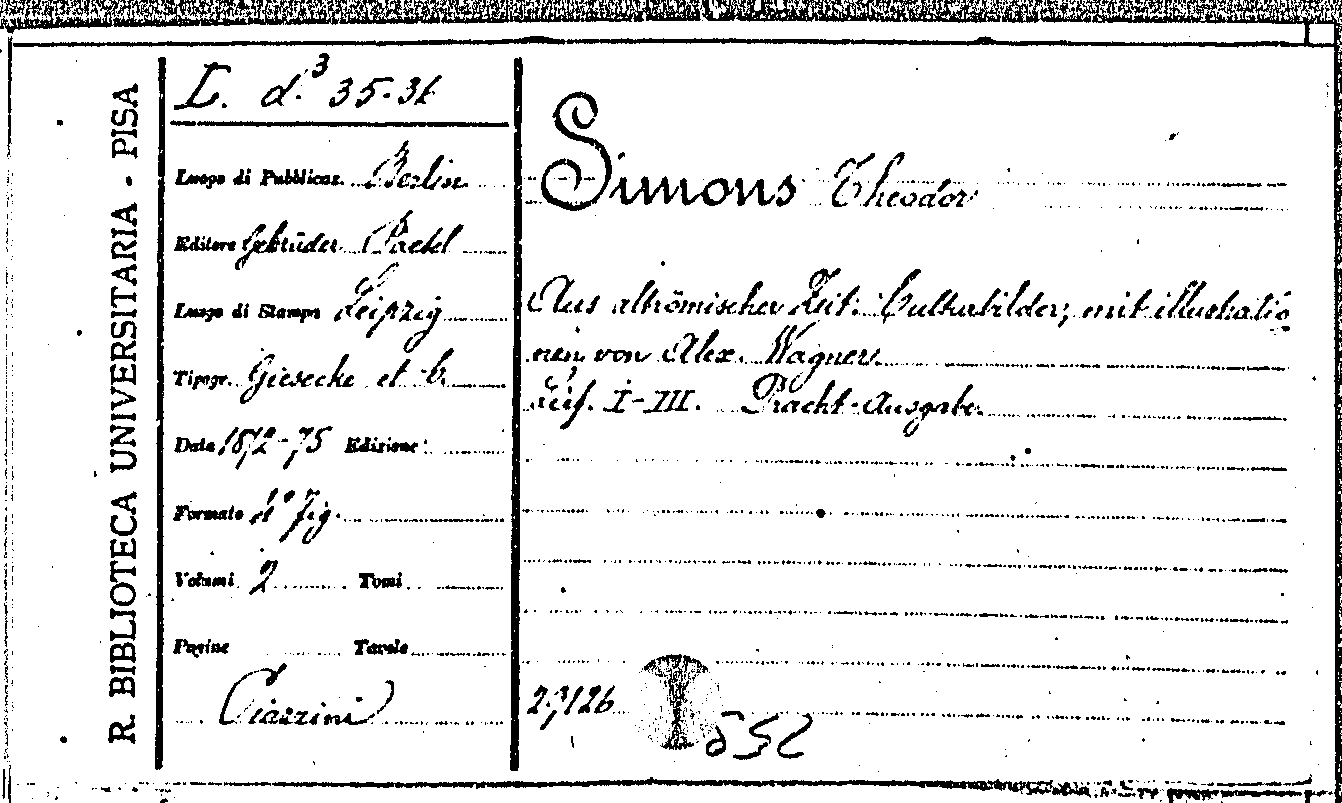 R. BIBLIOTECA UNIVERSITARIA - PISA
L. d.3 35-36
Luogo di Pubblicaz. Berlin
Editore Gebrüder Paetel
Luogo di Stampa Leipzig
Tipogr. Giesecke et C.
Data 1872-75 Edizione
Formato 4° fig.
Volumi 2 Tomi
Pagine Tavole
Piazzini
Simons Theodor
Aus altrömischer Zeit. Culturbilder, mit illustratio
nen von Alex. Wagner.
Lief. I-III. Pracht-Ausgabe.